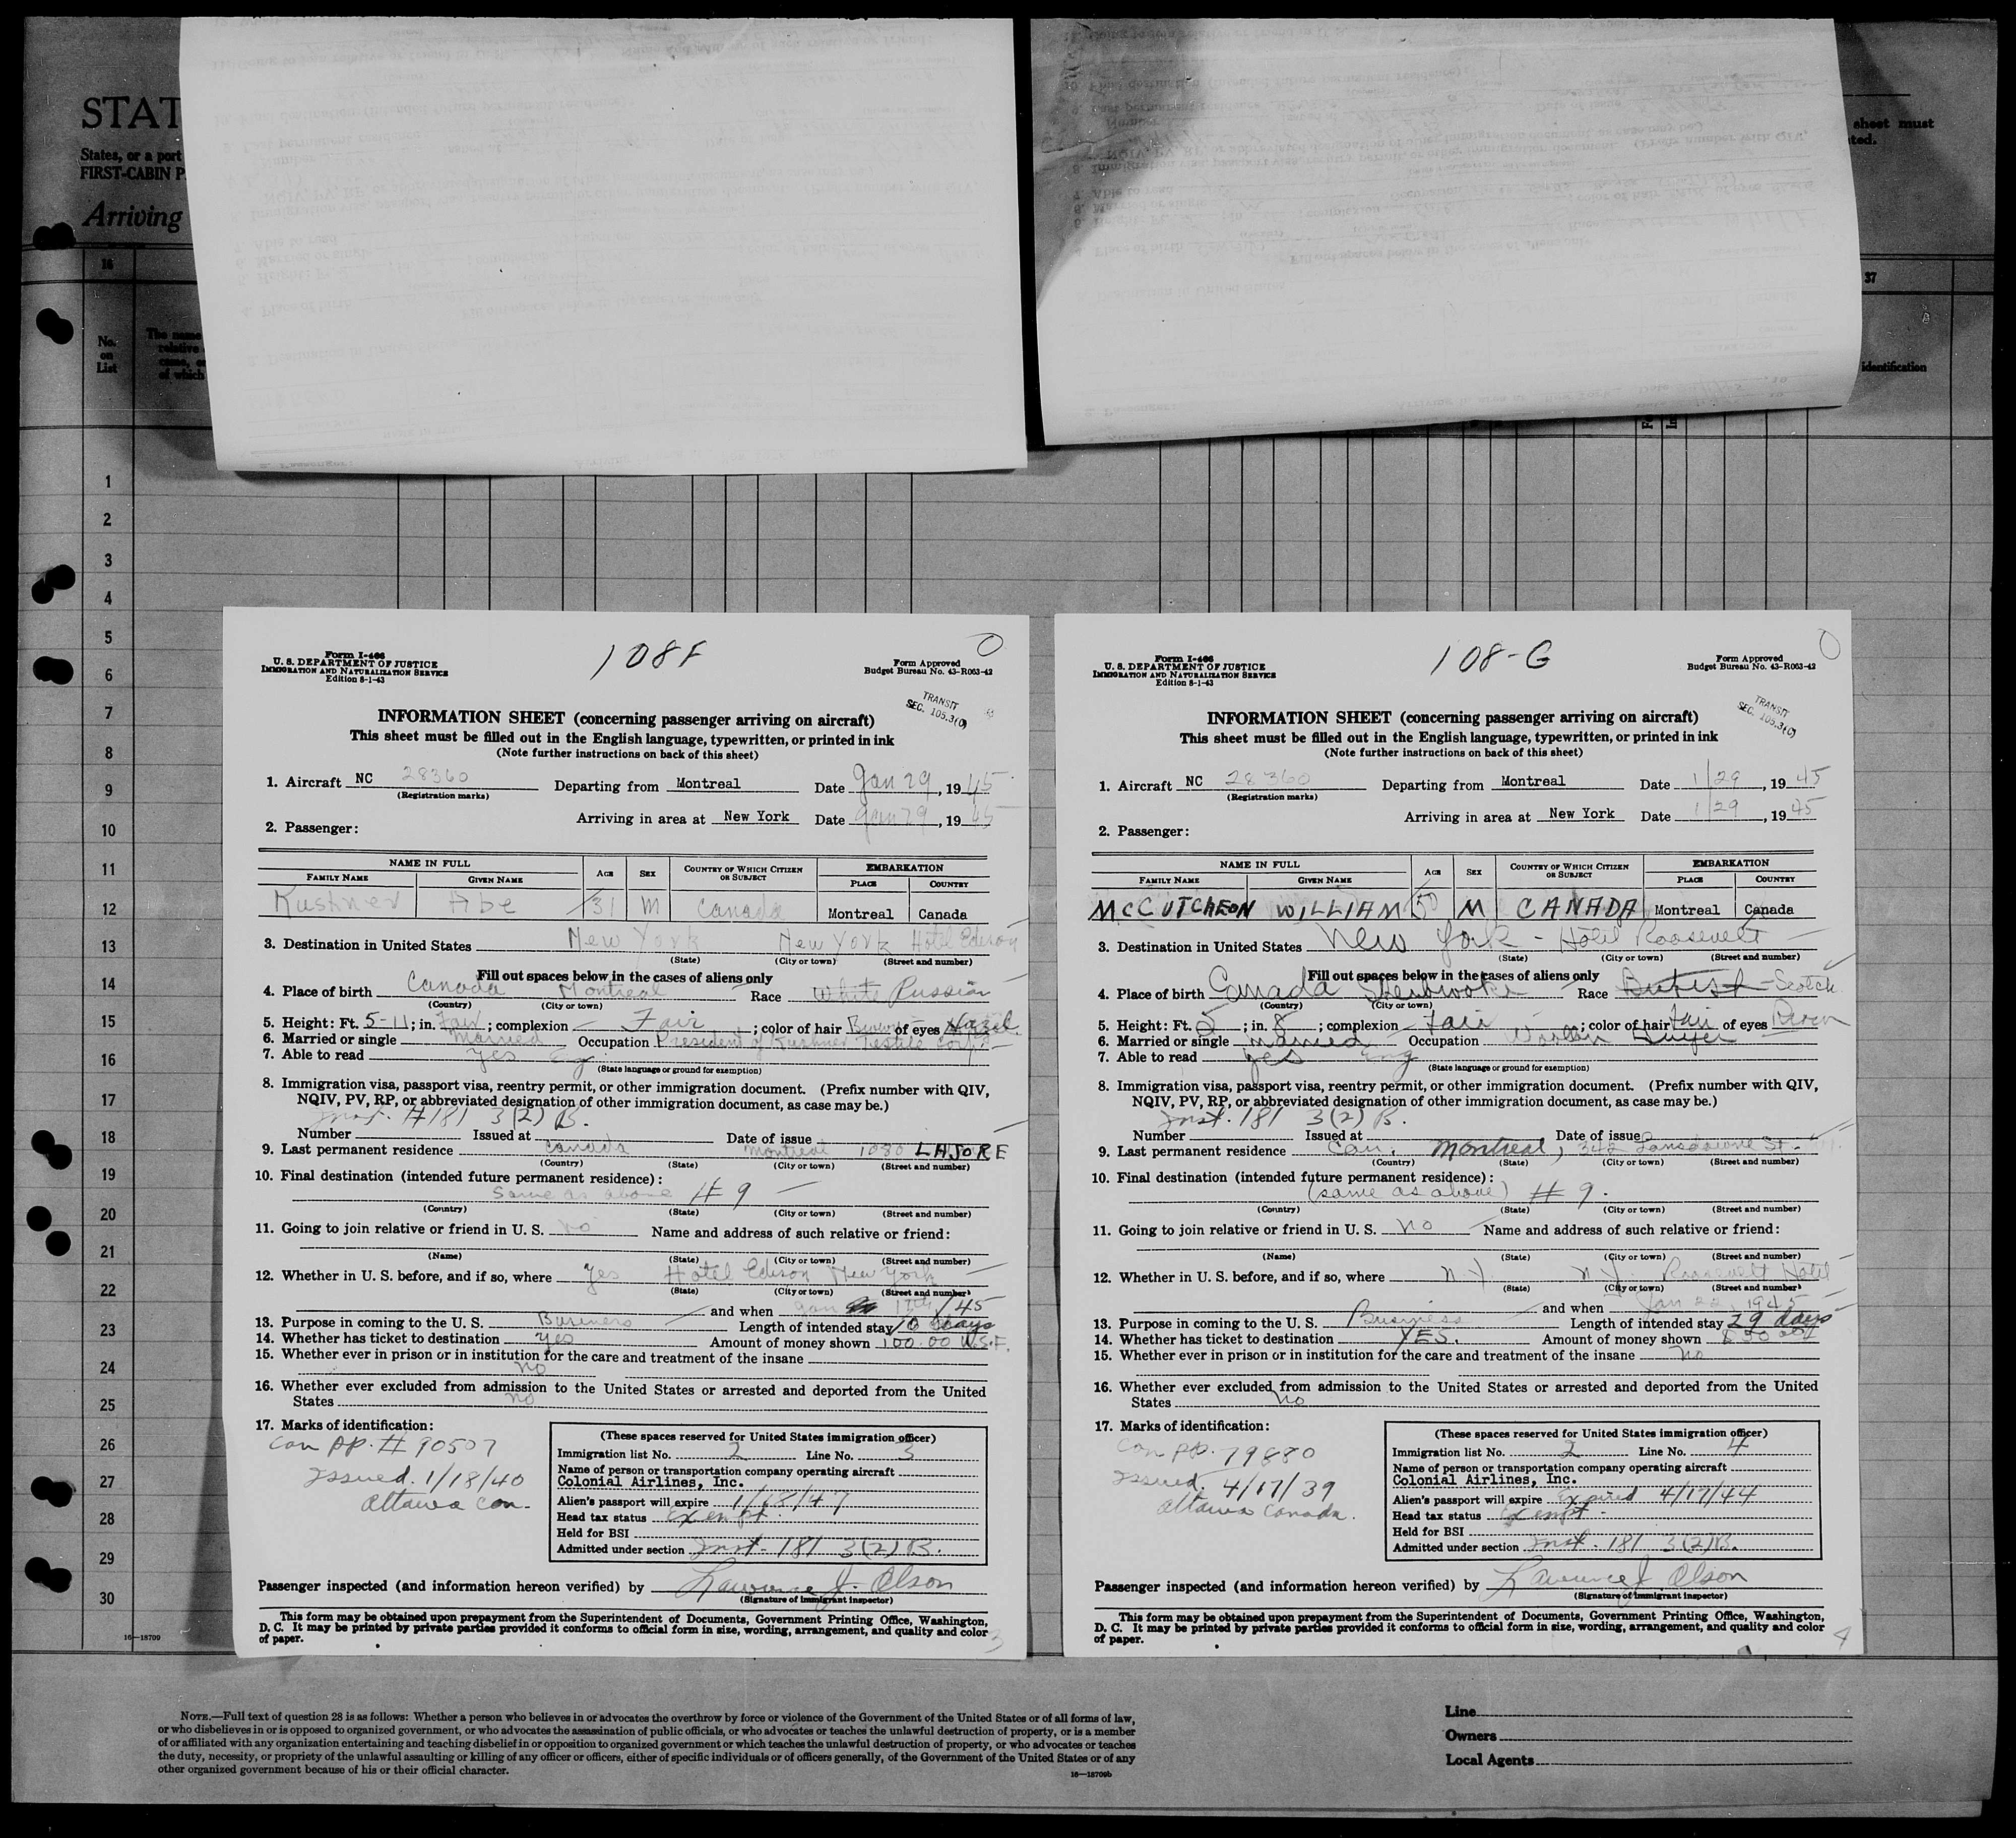 STAT
States, or a port
FIRST-CABIN P
Arriving
sheet must
ted.
16
37
No.
on
List
The name
relative
came, or
of which
identification
1
2
3
4
5
6
7
8
9
10
11
12
13
14
15
16
17
18
19
20
21
22
23
24
25
26
27
28
29
30
Form I-466
U. S. DEPARTMENT OF JUSTICE
IMMIGRATION AND NATURALIZATION SERVICE
Edition 8-1-43
108F
0
Form Approved
Budget Bureau No. 43-R063-42
TRANSIT
SEC. 105.3(0)
INFORMATION SHEET (concerning passenger arriving on aircraft)
This sheet must be filled out in the English language, typewritten, or printed in ink
(Note further instructions on back of this sheet)
1. Aircraft NC 28360 Departing from Montreal Date Jan 29, 1945
(Registration marks)
Arriving in area at New York Date Jan 29, 1945
2. Passenger:
NAME IN FULL AGE SEX COUNTRY OF WHICH CITIZEN OR SUBJECT EMBARKATION
FAMILY NAME GIVEN NAME PLACE COUNTRY
Kushner Abe 31 M Canada Montreal Canada
3. Destination in United States New York New York Hotel Edison
(State) (City or town) (Street and number)
Fill out spaces below in the cases of aliens only
4. Place of birth Canada Montreal Race White Russian
(Country) (City or town)
5. Height: Ft. 5-11; in. Fair; complexion Fair; color of hair Brown of eyes Hazel
6. Married or single Married Occupation President of Kushner Textile Corp.
7. Able to read yes Eng
(State language or ground for exemption)
8. Immigration visa, passport visa, reentry permit, or other immigration document. (Prefix number with QIV,
NQIV, PV, RP, or abbreviated designation of other immigration document, as case may be.)
Inst. #181 3(2) B.
Number Issued at Date of issue
9. Last permanent residence Canada Montreal 1080 LAJORE
(Country) (State) (City or town) (Street and number)
10. Final destination (intended future permanent residence):
same as above #9
(Country) (State) (City or town) (Street and number)
11. Going to join relative or friend in U. S. no Name and address of such relative or friend:
(Name) (State) (City or town) (Street and number)
12. Whether in U. S. before, and if so, where yes Hotel Edison New York
(State) (City or town) (Street and number)
and when Jan 1945
13. Purpose in coming to the U. S. Business Length of intended stay 10 days
14. Whether has ticket to destination yes Amount of money shown 100.00 U.S.F.
15. Whether ever in prison or in institution for the care and treatment of the insane
no
16. Whether ever excluded from admission to the United States or arrested and deported from the United
States no
17. Marks of identification:
Can pp. # 90507
Issued 1/18/40
Ottawa Can.
(These spaces reserved for United States immigration officer)
Immigration list No. 2 Line No. 3
Name of person or transportation company operating aircraft
Colonial Airlines, Inc.
Alien's passport will expire 1/18/47
Head tax status Exempt.
Held for BSI
Admitted under section Inst. 181 3(2)B.
Passenger inspected (and information hereon verified) by Lawrence J. Olson
(Signature of immigrant inspector)
This form may be obtained upon prepayment from the Superintendent of Documents, Government Printing Office, Washington,
D. C. It may be printed by private parties provided it conforms to official form in size, wording, arrangement, and quality and color
of paper.
3
Form I-466
U. S. DEPARTMENT OF JUSTICE
IMMIGRATION AND NATURALIZATION SERVICE
Edition 8-1-43
108-G
0
Form Approved
Budget Bureau No. 43-R063-42
TRANSIT
SEC. 105.3(0)
INFORMATION SHEET (concerning passenger arriving on aircraft)
This sheet must be filled out in the English language, typewritten, or printed in ink
(Note further instructions on back of this sheet)
1. Aircraft NC 28360 Departing from Montreal Date 1/29, 1945
(Registration marks)
Arriving in area at New York Date 1/29, 1945
2. Passenger:
NAME IN FULL AGE SEX COUNTRY OF WHICH CITIZEN OR SUBJECT EMBARKATION
FAMILY NAME GIVEN NAME PLACE COUNTRY
McCUTCHEON WILLIAM 50 M CANADA Montreal Canada
3. Destination in United States New York - Hotel Roosevelt
(State) (City or town) (Street and number)
Fill out spaces below in the cases of aliens only
4. Place of birth Canada Sherbrooke Race British Scotch
(Country) (City or town)
5. Height: Ft. 5; in. 8; complexion Fair; color of hair Fair of eyes Brown
6. Married or single married Occupation Woollen Buyer
7. Able to read yes Eng
(State language or ground for exemption)
8. Immigration visa, passport visa, reentry permit, or other immigration document. (Prefix number with QIV,
NQIV, PV, RP, or abbreviated designation of other immigration document, as case may be.)
Inst. 181 3(2) B.
Number Issued at Date of issue
9. Last permanent residence Can. Montreal, 342 Lansdowne St.
(Country) (State) (City or town) (Street and number)
10. Final destination (intended future permanent residence):
(same as above) #9.
(Country) (State) (City or town) (Street and number)
11. Going to join relative or friend in U. S. no Name and address of such relative or friend:
(Name) (State) (City or town) (Street and number)
12. Whether in U. S. before, and if so, where N.Y. N.Y. Roosevelt Hotel
(State) (City or town) (Street and number)
and when Jan 1945
13. Purpose in coming to the U. S. Business Length of intended stay 29 days
14. Whether has ticket to destination YES. Amount of money shown
15. Whether ever in prison or in institution for the care and treatment of the insane no
16. Whether ever excluded from admission to the United States or arrested and deported from the United
States no
17. Marks of identification:
Can pp. 79880
Issued 4/17/39
Ottawa Canada.
(These spaces reserved for United States immigration officer)
Immigration list No. 2 Line No. 4
Name of person or transportation company operating aircraft
Colonial Airlines, Inc.
Alien's passport will expire Expired 4/17/44
Head tax status Exempt.
Held for BSI
Admitted under section Inst. 181 3(2)B.
Passenger inspected (and information hereon verified) by Lawrence J. Olson
(Signature of immigrant inspector)
This form may be obtained upon prepayment from the Superintendent of Documents, Government Printing Office, Washington,
D. C. It may be printed by private parties provided it conforms to official form in size, wording, arrangement, and quality and color
of paper.
4
NOTE.—Full text of question 28 is as follows: Whether a person who believes in or advocates the overthrow by force or violence of the Government of the United States or of all forms of law,
or who disbelieves in or is opposed to organized government, or who advocates the assassination of public officials, or who advocates or teaches the unlawful destruction of property, or is a member
of or affiliated with any organization entertaining and teaching disbelief in or opposition to organized government or which teaches the unlawful destruction of property, or who advocates or teaches
the duty, necessity, or propriety of the unlawful assaulting or killing of any officer or officers, either of specific individuals or of officers generally, of the Government of the United States or of any
other organized government because of his or their official character.
16—18709
16—18709b
Line
Owners
Local Agents